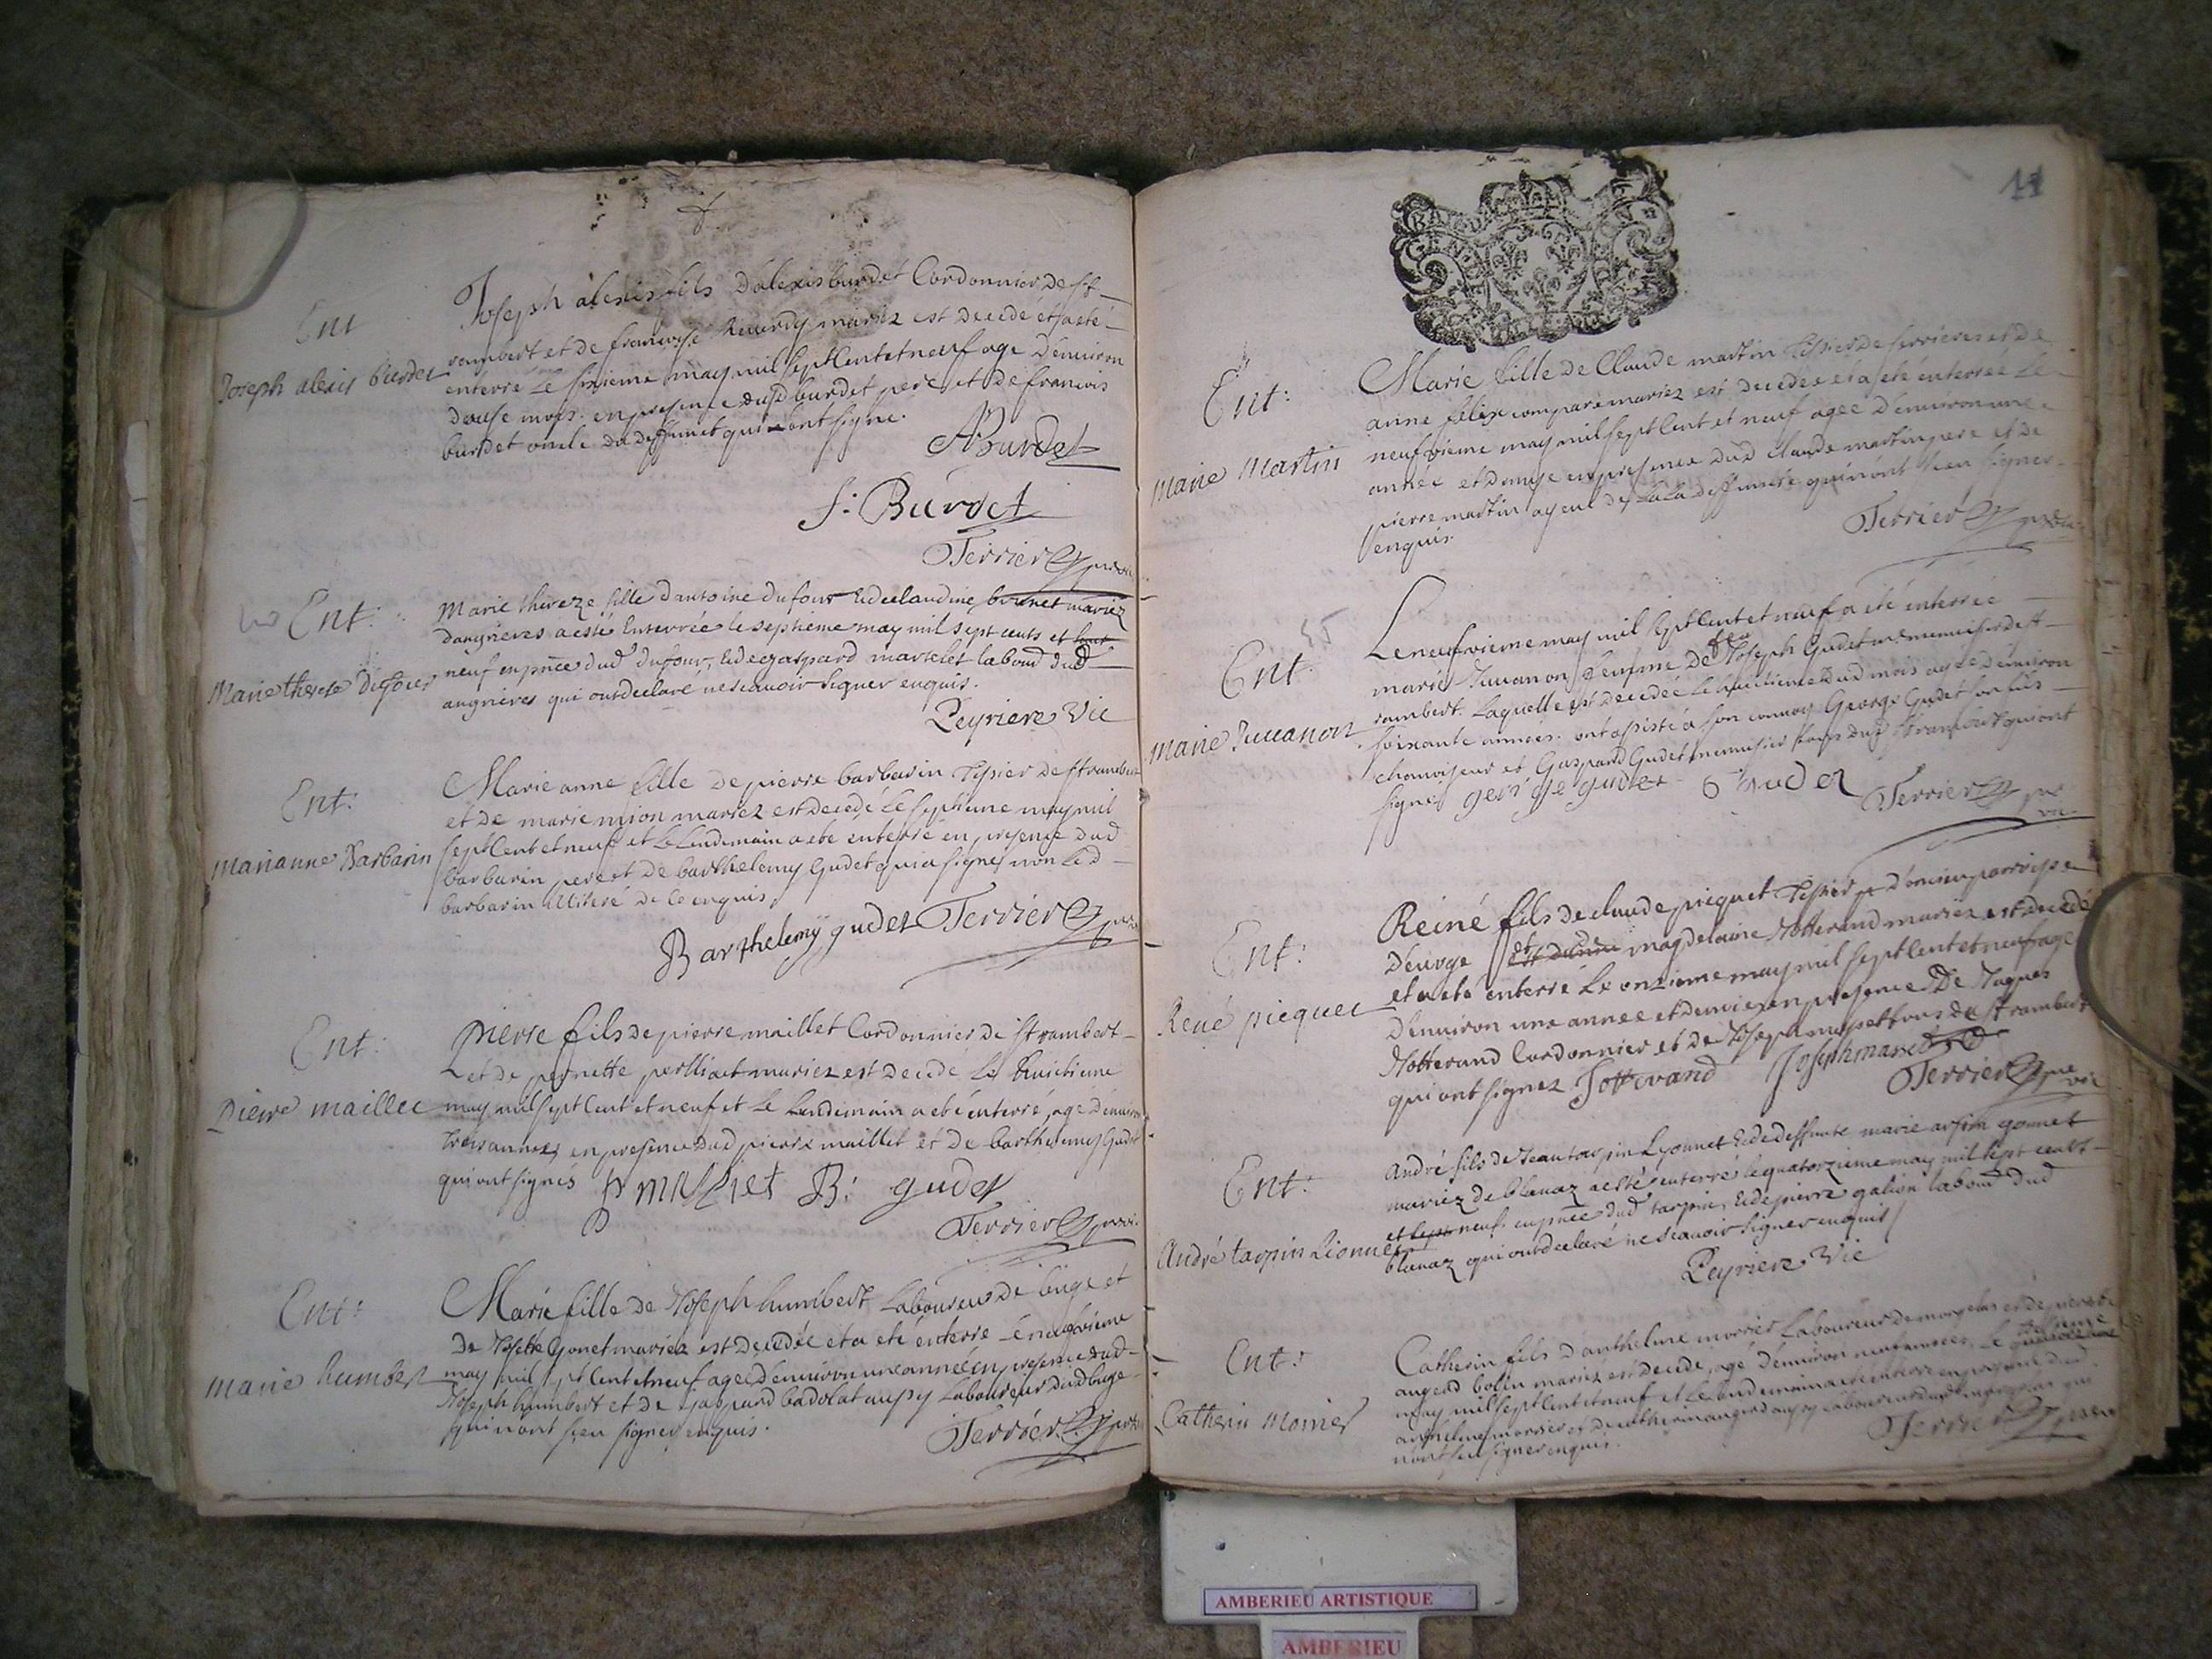 Ent
Joseph alexis burdet
Joseph alexis fils d'alexis burdet Cordonnier de st
rambert et de francoise mariez est decede et a eté
enterré le sixieme may mil sept Cent et neuf age d'enuiron
douse mois. en presence dud burdet pere et de francois
burdet oncle du deffunct qui ont signe.
ABurdet
f: Burdet
Terrier
Ent:
Marie therese Dufour
Mariethereze fille d'antoine dufour et de claudine bonnet mariez
d'angrieres a esté Enterrée le septieme may mil sept cents et huit
neuf en pnce dud dufour, et de gaspard marcelet labour dud
angrieres qui ont declaré ne scauoir signer enquis.
Peyriere Vic
Ent:
Marianne Barbarin
Marie anne fille de pierre barbarin Tissier de st rambert
et de marie mion mariez est decedé le septieme may mil
sept Cent et neuf et le lendemain a ete enterré en presence dud
barbarin pere et de barthelemy Gudet qui a signes non led
barbarin illiteré de ce enquis.
Barthelemy gudet Terrier
Ent:
Pierre maillet
Pierre fils de pierre maillet Cordonnier de st rambert
et de pernette mariez est decede le huictieme
may mil sept Cent et neuf et le lendemain a eté enterré, age d'enuiron
trois années en presence dud pierre maillet et de barthelemy Gudet
qui ont signés p maliet B: gudet
Terrier
Ent:
Marie humbert
Marie fille de Joseph humbert Laboureur de buge et
de Josette Gonet mariez est decedée et a eté enterre le neufvieme
may mil sept Cent et neuf agee d'enuiron une année en presence dud
Joseph humbert et de Gaspard badolat aussy Laboureur dud buge
qui n'ont sceu signer enquis.
Terrier
11
Ent:
Marie Martin
Marie fille de Claude martin Tissier de serrieres et de
anne felix compare mariez est decedée et a eté enterrée le
neufvieme may mil sept Cent et neuf agee d'enuiron une
année et demye en presence dud Claude martin pere et de
pierre martin ayeul de la deffuncte qui n'ont sceu signer
enquis.
Terrier
Ent:
Marie Juuanon
Le neufvieme may mil sept Cent et neuf a été enterrée
marie Juuanon femme de feu Joseph Gudet menuisier de st
rambert. Laquelle est decedée le huictieme dud mois agee d'enuiron
soixante années. ont assisté a son conuoy George Gudet son fils
chanoiseur et Gaspard Gudet menuisier tous dud st rambert qui ont
signes george gudet G gudet Terrier
Ent:
René picquet
Reiné fils de claude picquet Tissier d'oncieu parroisse
et magdelaine Notterand mariez est decedé
et a eté enterré le onzieme may mil sept Cent et neuf age
d'enuiron une annee et demie en presence de Jaques
Notterand Cordonnier et de Joseph tous de st rambert
qui ont signez Jotterand Joseph
Terrier
Ent:
André tarpin Lionnet
André fils de Jean tarpin Lyonnet et de deffunte marie gonnet
mariez de blanaz a esté enterré le quatorzieme may mil sept cents
et sept neuf. en pnce dud tarpin, et de pierre galion labour dud
blanaz qui ont declaré ne scauoir signer enquis
Peyriere Vic
Ent:
Catherin Morrier
Catherin fils d'anthelme morrier Laboureur de et de pierrette
augerd bolin mariez est decede, agé d'enuiron neuf années, le
may mil sept Cent et neuf et le lendemain a eté enterre en presence dud
anthelme morrier et d'anthelme augerd aussy laboureur dud qui
n'ont sceu signer enquis.
Terrier
AMBERIEU ARTISTIQUE
AMBERIEU